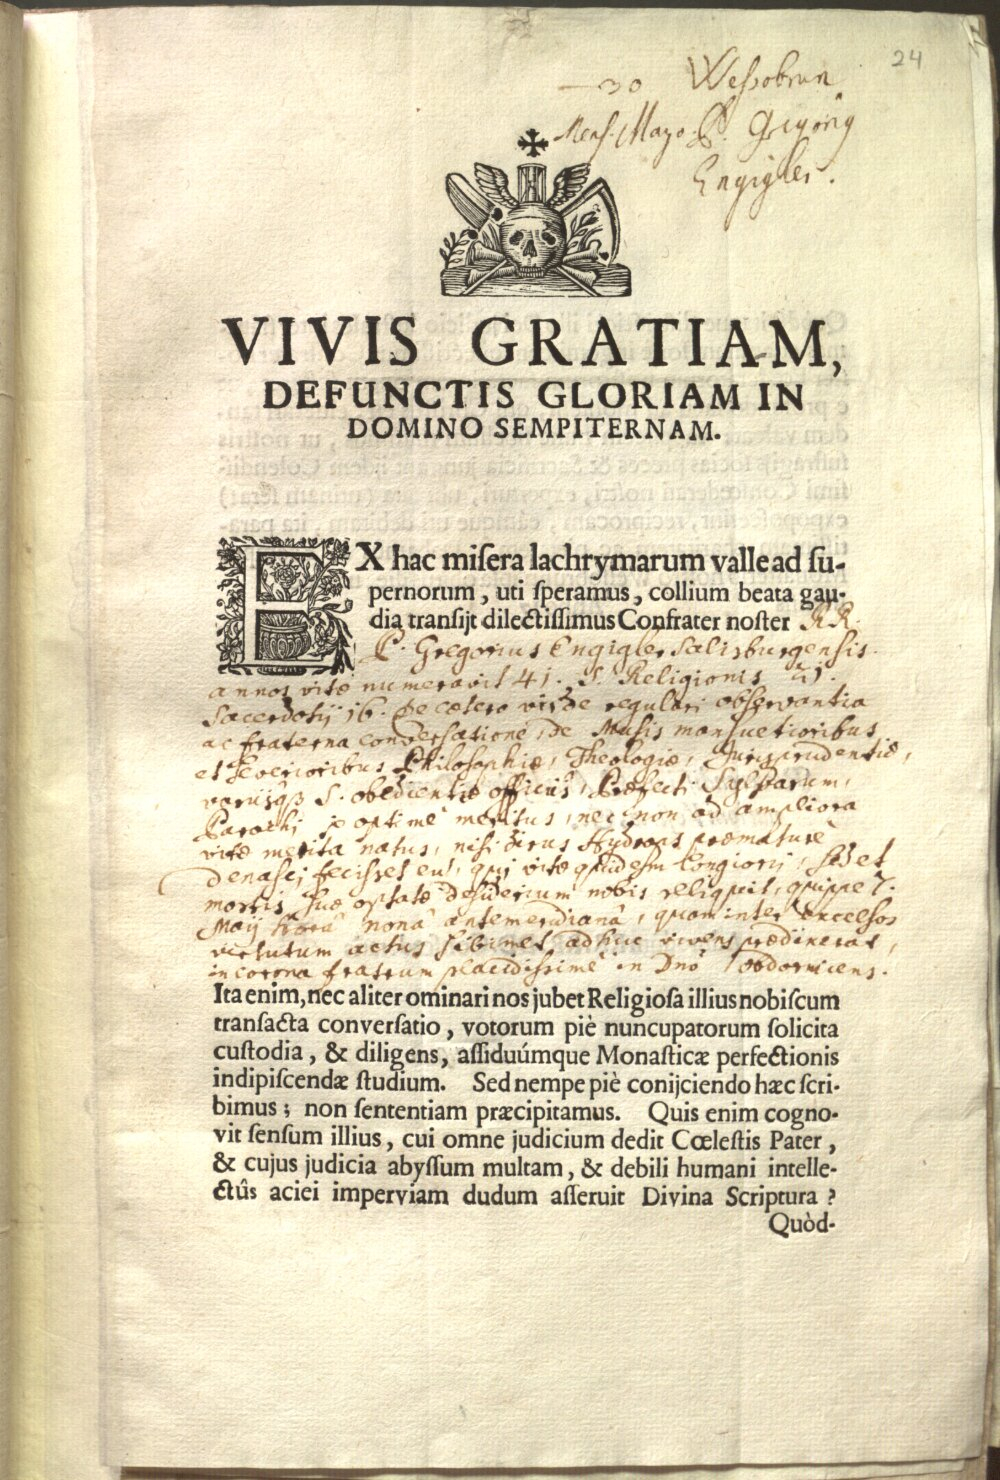 24
30 Wessobrun
Mens. Mayo P. Gregorig
Engigler.
VIVIS GRATIAM,
DEFUNCTIS GLORIAM IN
DOMINO SEMPITERNAM.
EX hac misera lachrymarum valle ad su-
pernorum, uti speramus, collium beata gau-
dia transijt dilectissimus Confrater noster RR.
P. Gregorius Engigler Salisburgensis.
annos vitæ numeravit 41. S. Religionis 21.
Sacerdotij 16. de cætero vir de regulari observantia
ac fraterna conversatione, de Musis mansuetioribus
et severioribus Philosophiæ, Theologiæ, Jurisprudentiæ,
varijsq3 S. obedientiæ officijs, Præfecti Sylvarum,
Parochi optimè meritus, nec non ad ampliora
vitæ merita natus, nisi dirus Hydrops præmaturè
denasci fecisset eum, qui vitæ quidem longioris, sed et
mortis suæ optatæ desiderium nobis reliquit, quippe 7.
Maij horâ nonâ antemeridianâ, quam inter excelsos
virtutum actus sibimet adhuc vivens prædixerat,
in corona fratrum placidissimè in Dnō obdormiens.
Ita enim, nec aliter ominari nos jubet Religiosa illius nobiscum
transacta conversatio, votorum piè nuncupatorum solicita
custodia, & diligens, assiduúmque Monasticæ perfectionis
indipiscendæ studium. Sed nempe piè conijciendo hæc scri-
bimus; non sententiam præcipitamus. Quis enim cogno-
vit sensum illius, cui omne judicium dedit Cœlestis Pater,
& cujus judicia abyssum multam, & debili humani intelle-
ctûs aciei imperviam dudum asseruit Divina Scriptura?
Quòd-